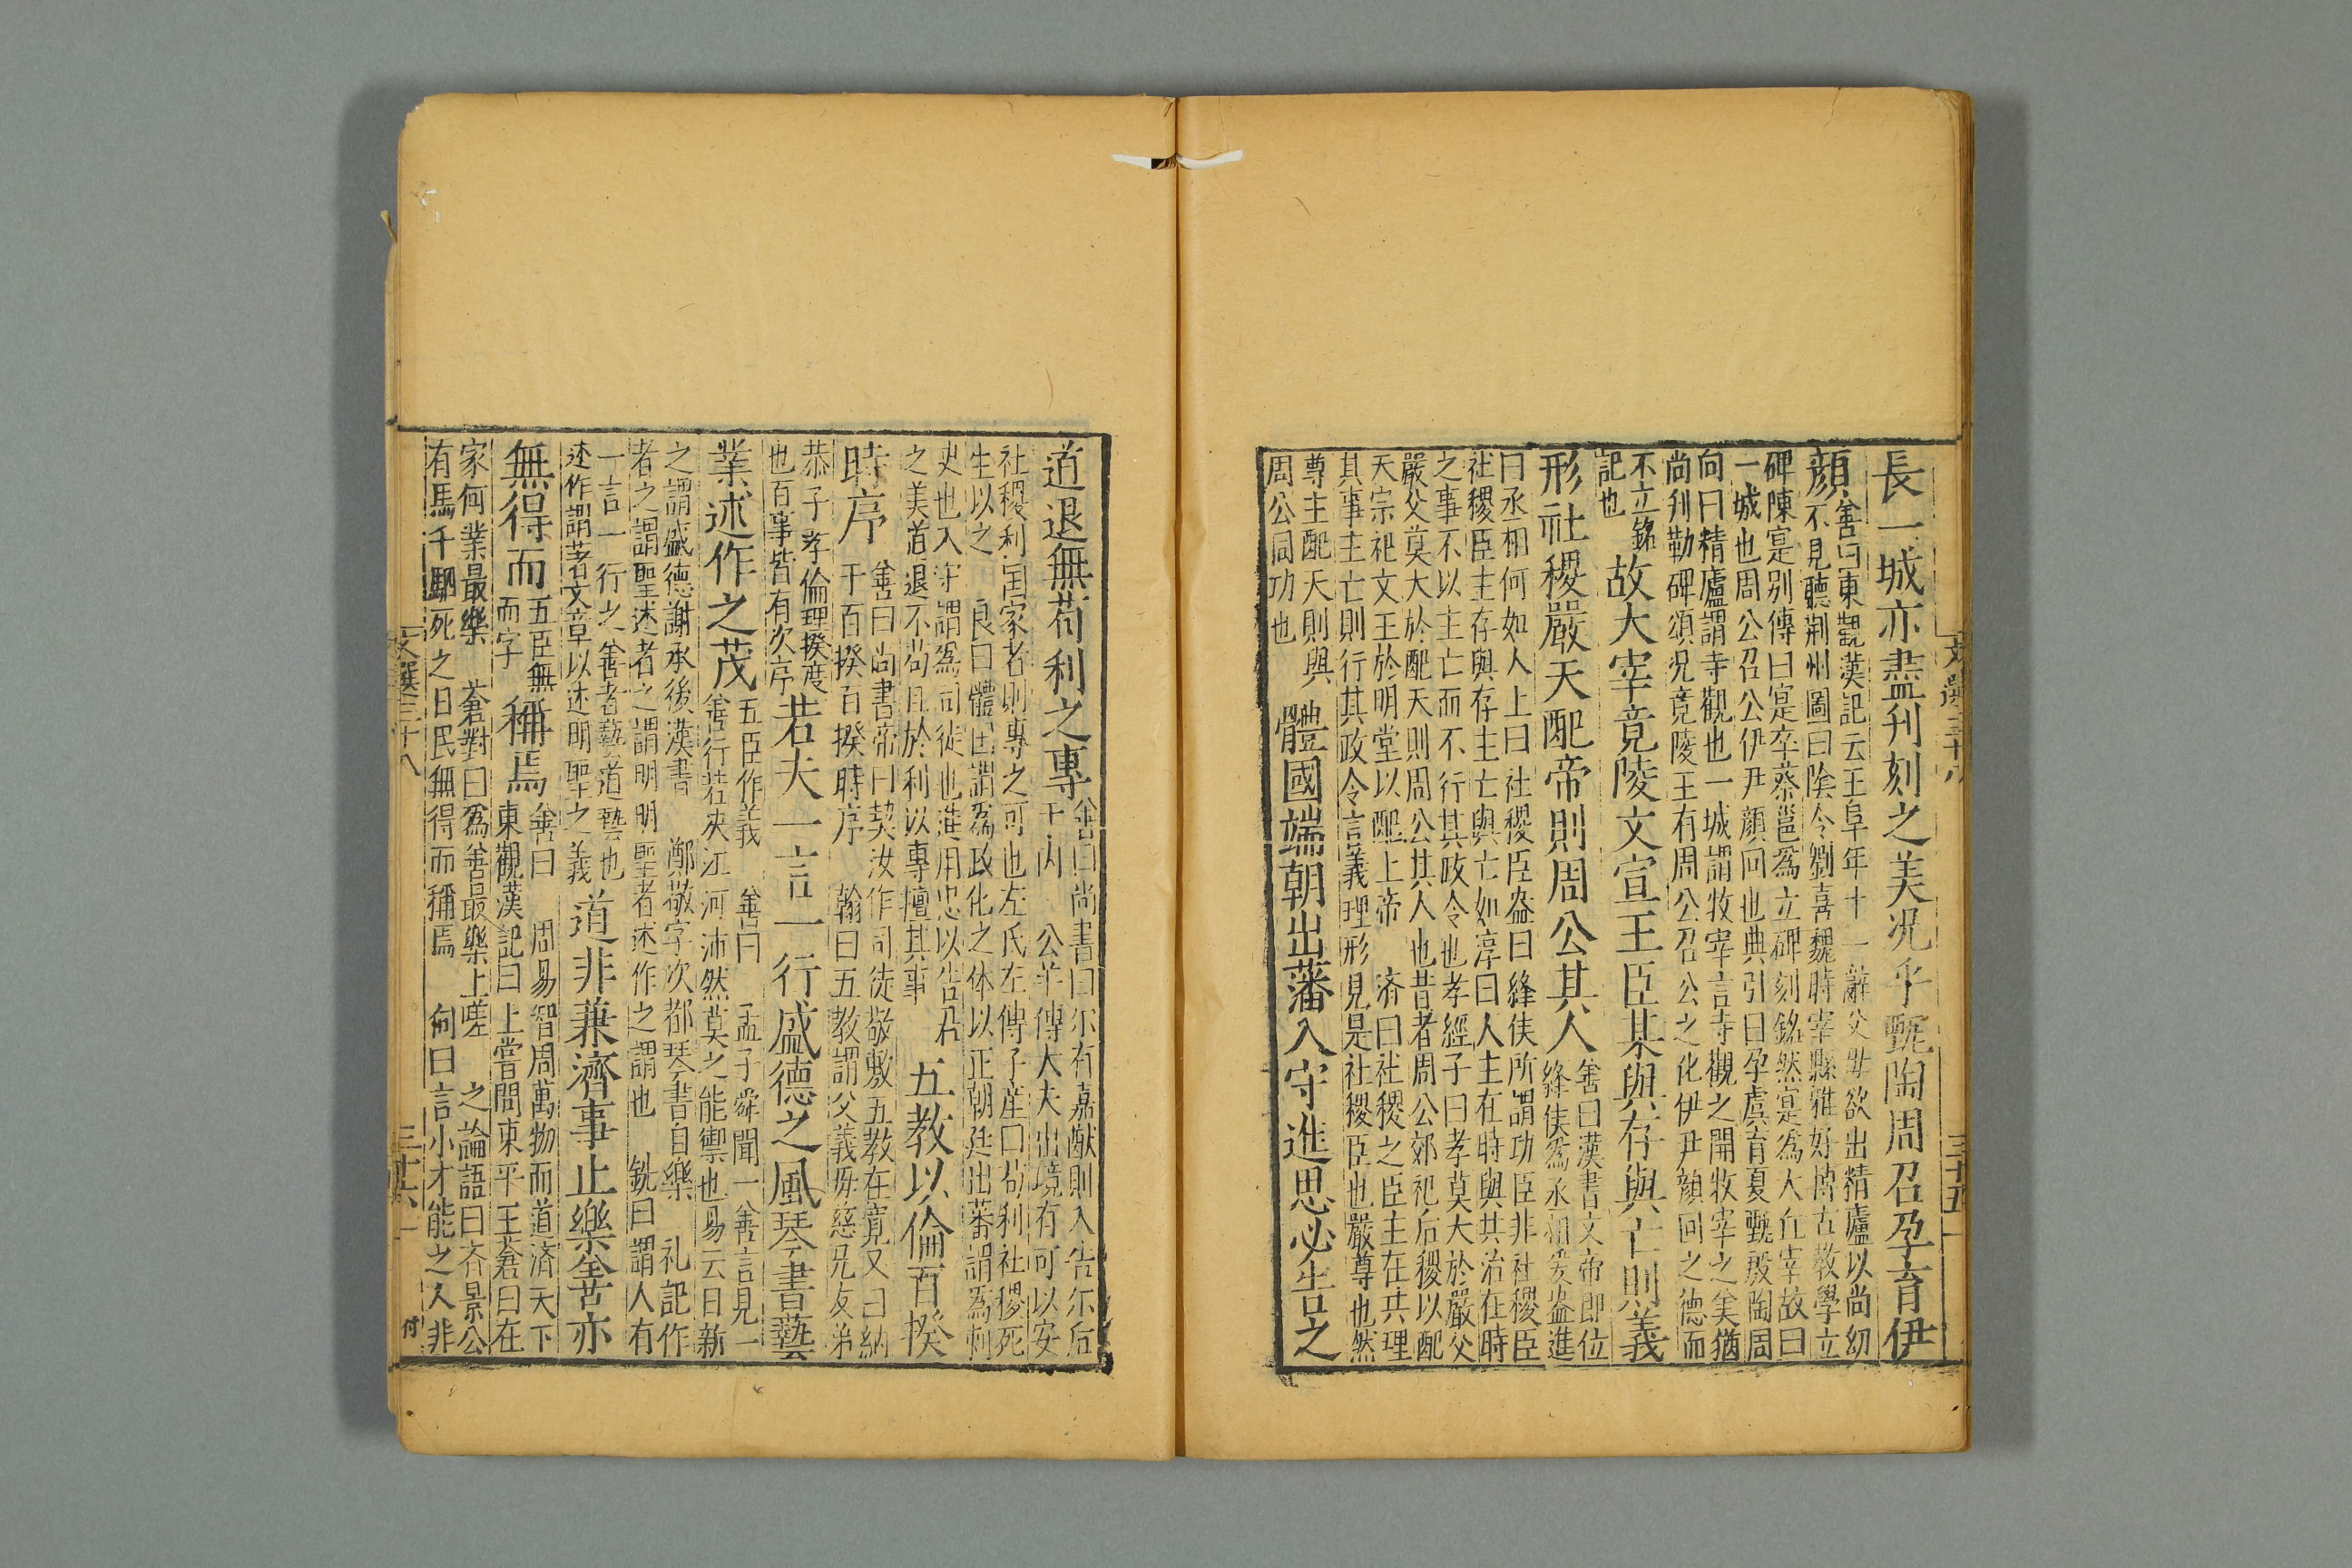 長一城亦盡刊刻之美況乎甄陶周召孕育伊
顏善曰東觀漢記云王阜年十一辭父母欲出精廬以尚幼
不見聽荊州圖曰陰令劉喜魏時宰縣雅好博古教學立
碑陳寔別傳曰寔卒蔡邕為立碑刻銘然寔為太丘宰故曰
一城也周公召公伊尹顏回也典引曰孕虞育夏甄殷陶周
向曰精廬謂寺觀也一城謂牧宰言寺觀之開牧宰之美猶
尚刊勒碑頌況竟陵王有周公召公之化伊尹顏回之德而
不立銘
記也
故太宰竟陵文宣王臣某與存與亡則義
形社稷嚴天配帝則周公其人善曰漢書文帝即位
絳侯為丞相爰盎進
曰丞相何如人上曰社稷臣盎曰絳侯所謂功臣非社稷臣
社稷臣主存與存主亡與亡如淳曰人主在時與共治在時
之事不以主亡而不行其政令也孝經子曰孝莫大於嚴父
嚴父莫大於配天則周公其人也昔者周公郊祀后稷以配
天宗祀文王於明堂以配上帝 濟曰社稷之臣主在共理
其事主亡則行其政令言義理形見是社稷臣也嚴尊也然
尊主配天則與
周公同功也
體國端朝出藩入守進思必告之
道退無苟利之專善曰尚書曰尔有嘉猷則入告尔后
于內 公羊傳大夫出境有可以安
社稷利国家者則專之可也左氏左傳子產曰苟利社稷死
生以之 良曰體国謂為政化之体以正朝廷出蕃謂為刺
史也入守謂為司徒也進用忠以告君
之美道退不尚且於利以專擅其事
五教以倫百揆
時序善曰尚書帝曰契汝作司徒敬敷五教在寬又曰納
于百揆百揆時序 翰曰五教謂父義母慈兄友弟
恭子孝倫理揆度
也百事皆有次序
若夫一言一行盛德之風琴書藝
業述作之茂五臣作義 善曰 孟子舜聞一善言見一
善行若决江河沛然莫之能禦也易云日新
之謂盛德謝承後漢書 鄭敬字次都琴書自樂 礼記作
者之謂聖述者之謂明明聖者述作之謂也 銑曰謂人有
一言一行之善者藝道藝也
述作謂著文章以述明聖之義
道非兼濟事止樂善亦
無得而五臣無
而字
稱焉善曰 周易智周萬物而道済天下
東觀漢記曰上嘗問東平王蒼曰在
家何業最樂 蒼對曰為善最樂上嗟 之論語曰齐景公
有馬千駟死之日民無得而稱焉 向曰言小才能之人非
文選三十八
三十五
文選三十八
三十六
付